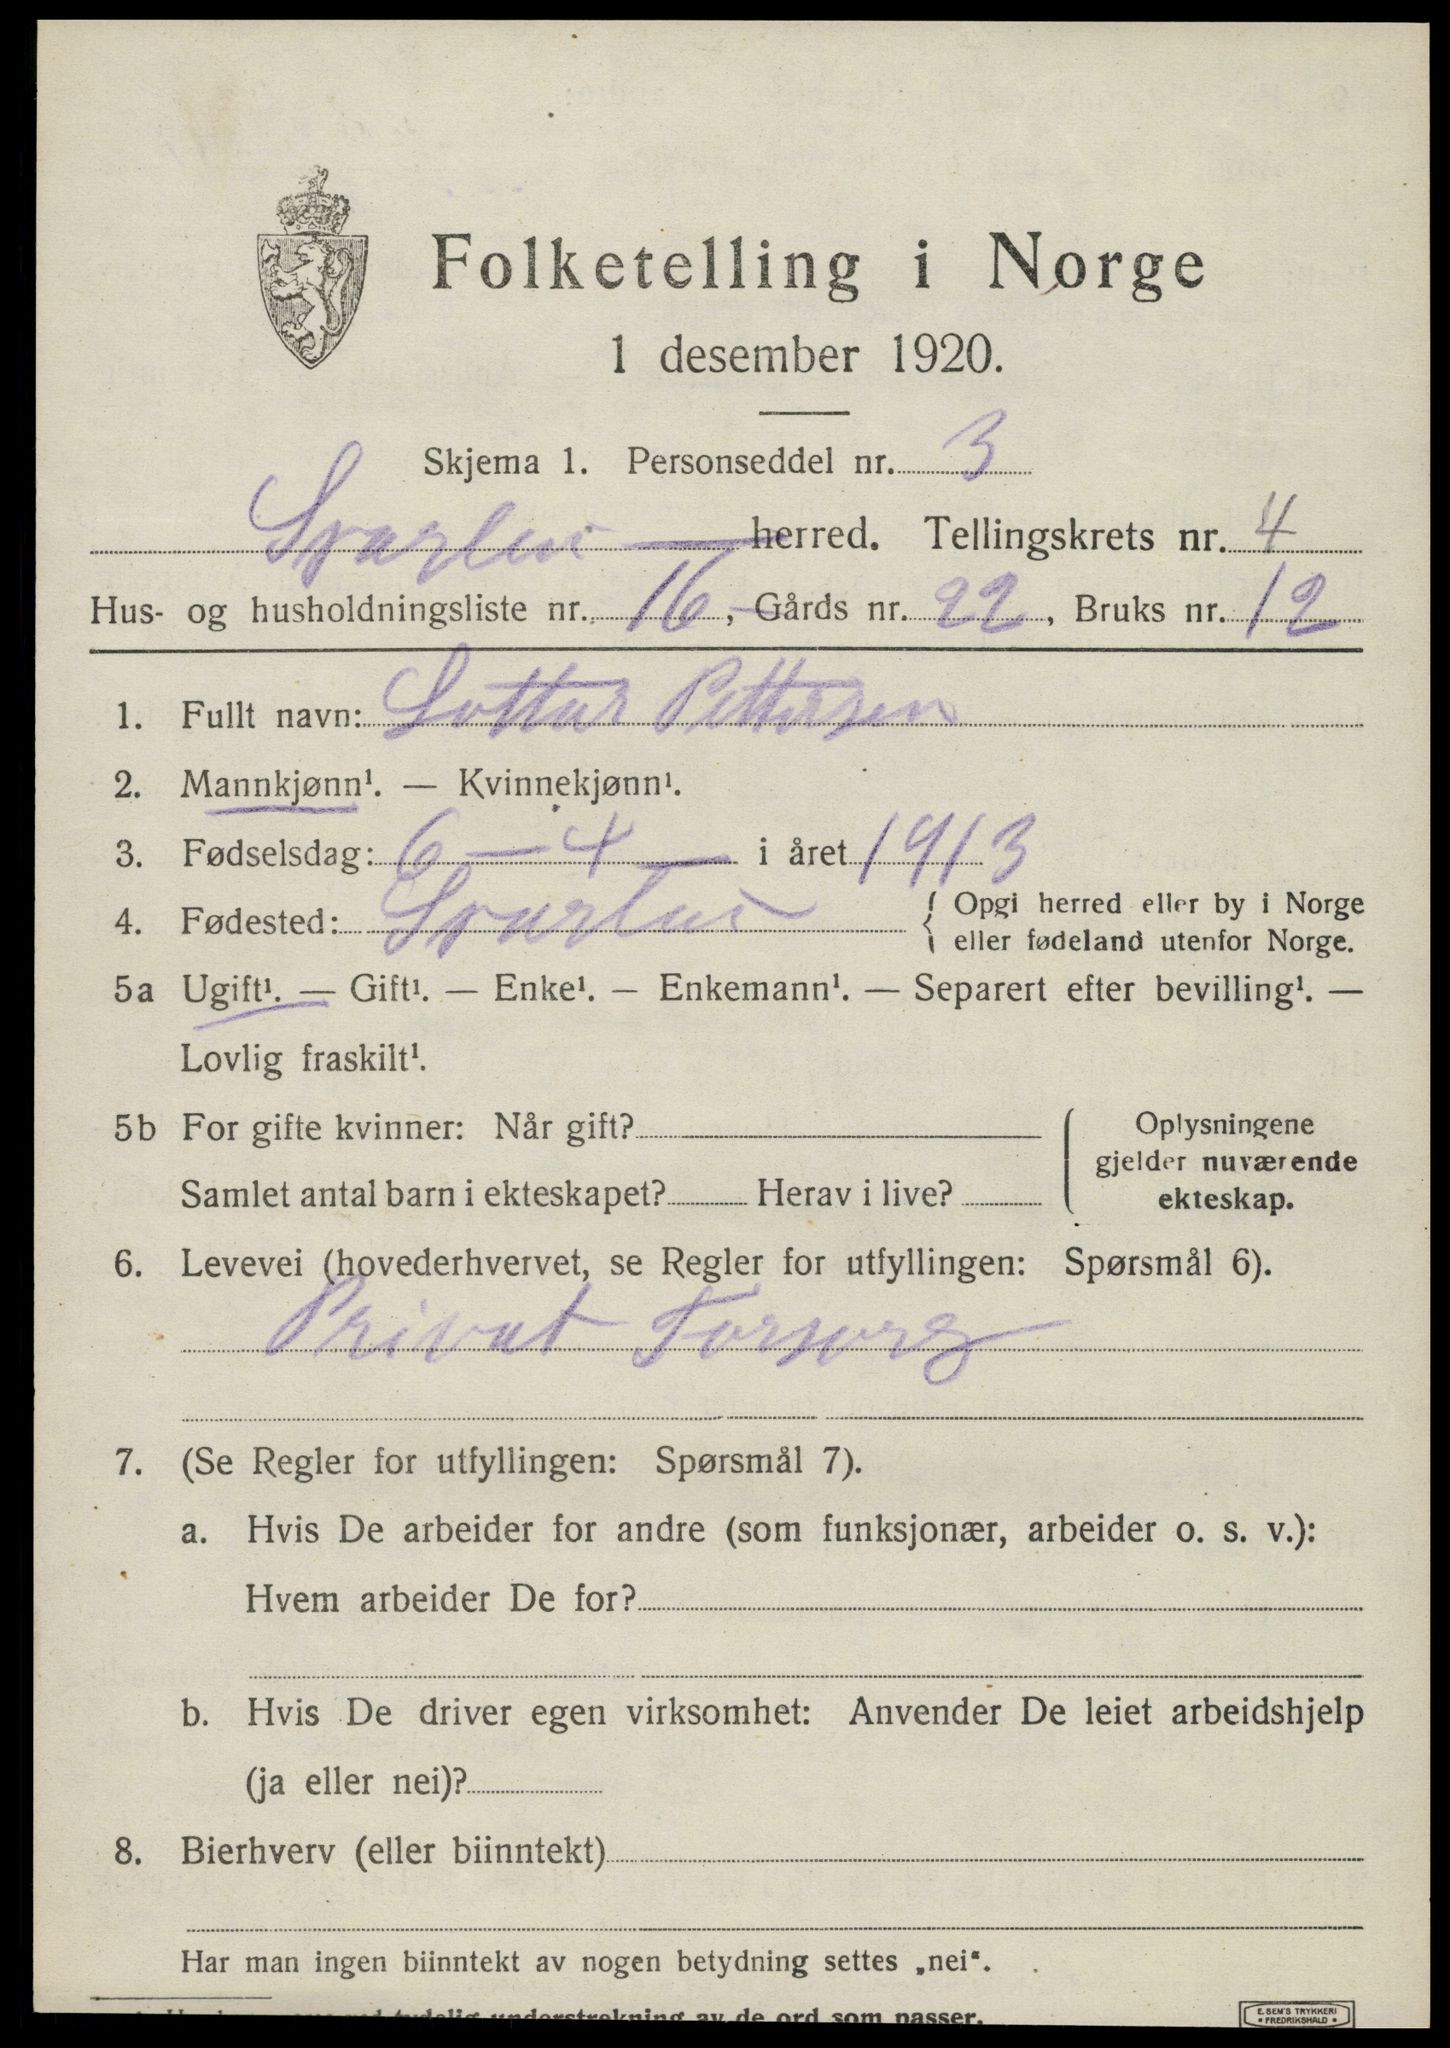 Folketelling i Norge
1 desember 1920.
Skjema 1. Personseddel nr. 3
herred. Tellingskrets nr. 4
Hus- og husholdningsliste nr. 16, Gårds nr. 22, Bruks nr. 12
1. Fullt navn: Lottar Pettersen
2. Mannkjønn¹. — Kvinnekjønn¹.
3. Fødselsdag: 6 - 4 i året 1913
4. Fødested: { Opgi herred eller by i Norge
eller fødeland utenfor Norge.
5a Ugift¹. — Gift¹. — Enke¹. — Enkemann¹. — Separert efter bevilling¹. —
Lovlig fraskilt¹.
5b For gifte kvinner: Når gift?
Samlet antal barn i ekteskapet? Herav i live?
Oplysningene
gjelder nuværende
ekteskap.
6. Levevei (hovederhvervet, se Regler for utfyllingen: Spørsmål 6).
Privat Forsorg
7. (Se Regler for utfyllingen: Spørsmål 7).
a. Hvis De arbeider for andre (som funksjonær, arbeider o. s. v.):
Hvem arbeider De for?
b. Hvis De driver egen virksomhet: Anvender De leiet arbeidshjelp
(ja eller nei)?
8. Bierhverv (eller biinntekt)
Har man ingen biinntekt av nogen betydning settes „nei“.
tydelig understrekning av de ord som passer.
E. SEM'S TRYKKERI
• FREDRIKSHALD •